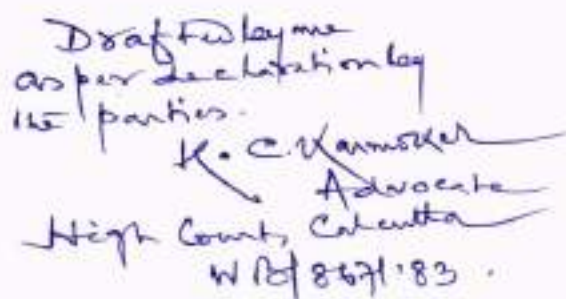 Drafted by me
as per declaration by
the parties.
K. C. Karmokar
Advocate
High Court, Calcutta
WB/867/'83.